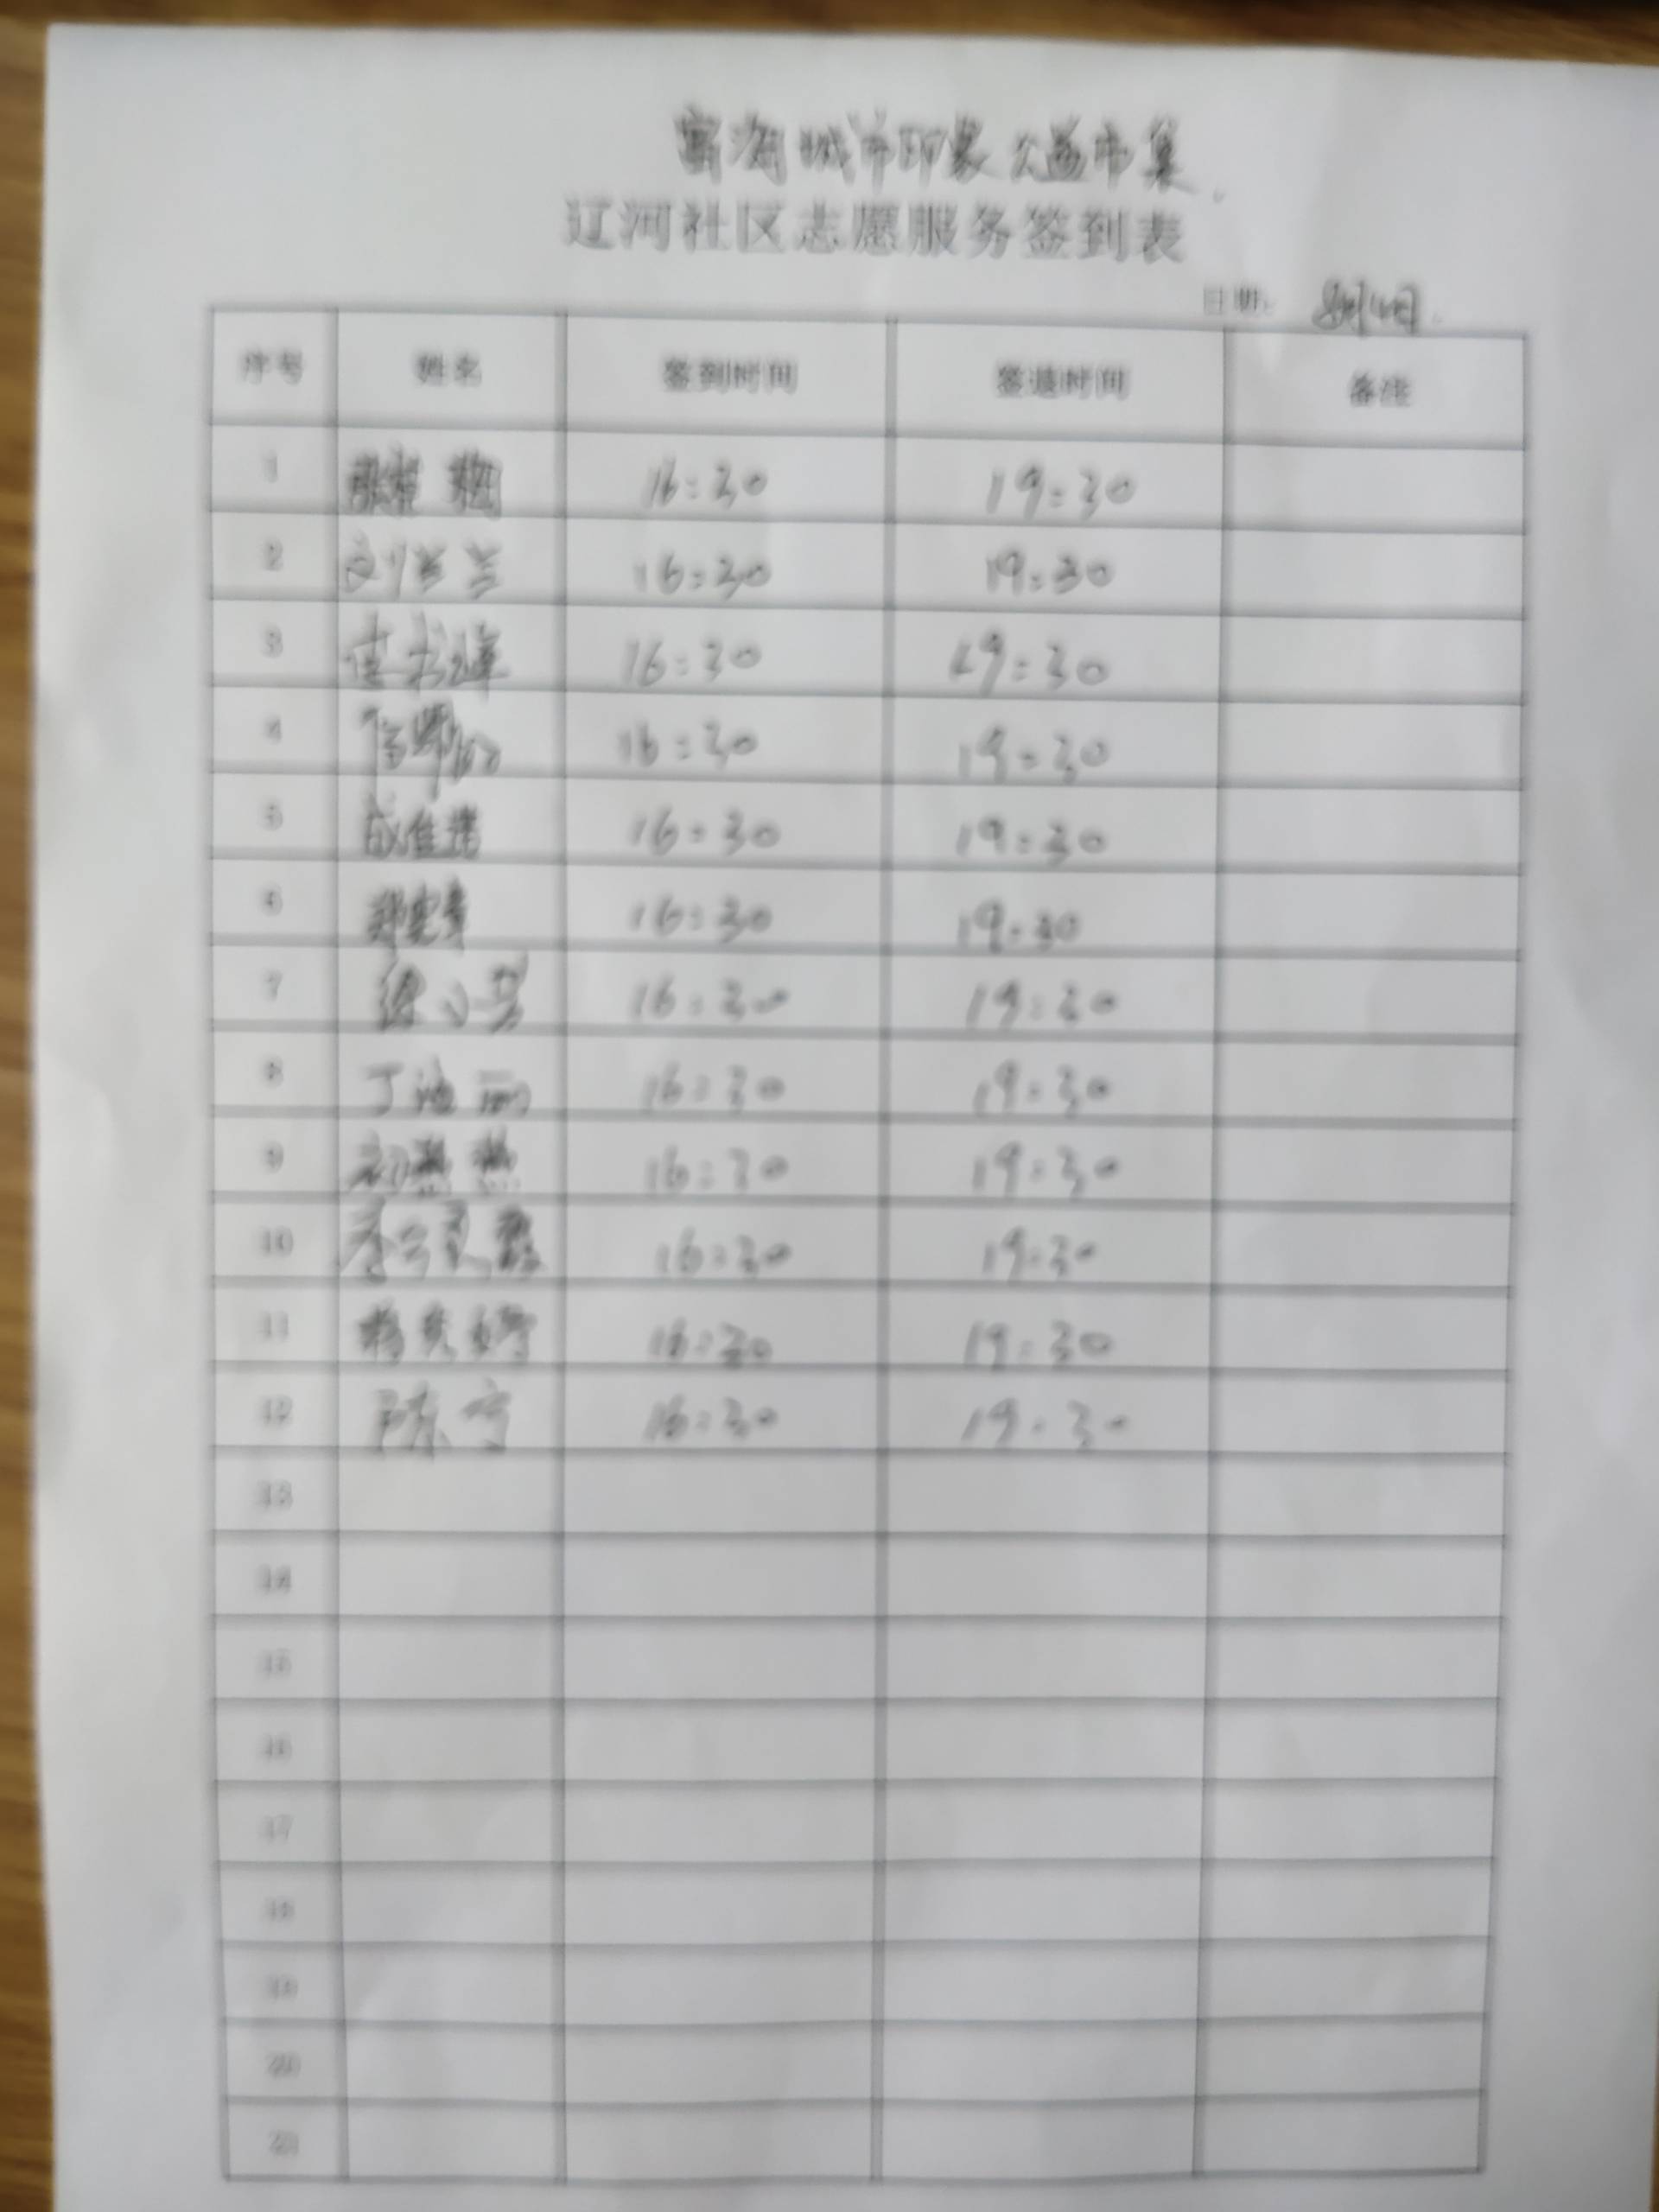 城市印象公益市集
辽河社区志愿服务签到表
日期: 8月14日
序号 姓名 签到时间 签退时间 备注
1 16:30 19:30
2 刘兰兰 16:30 19:30
3 16:30 19:30
4 16:30 19:30
5 16:30 19:30
6 16:30 19:30
7 16:30 19:30
8 丁 丽 16:30 19:30
9 初燕燕 16:30 19:30
10 16:30 19:30
11 16:30 19:30
12 陈宁 16:30 19:30
13
14
15
16
17
18
19
20
21